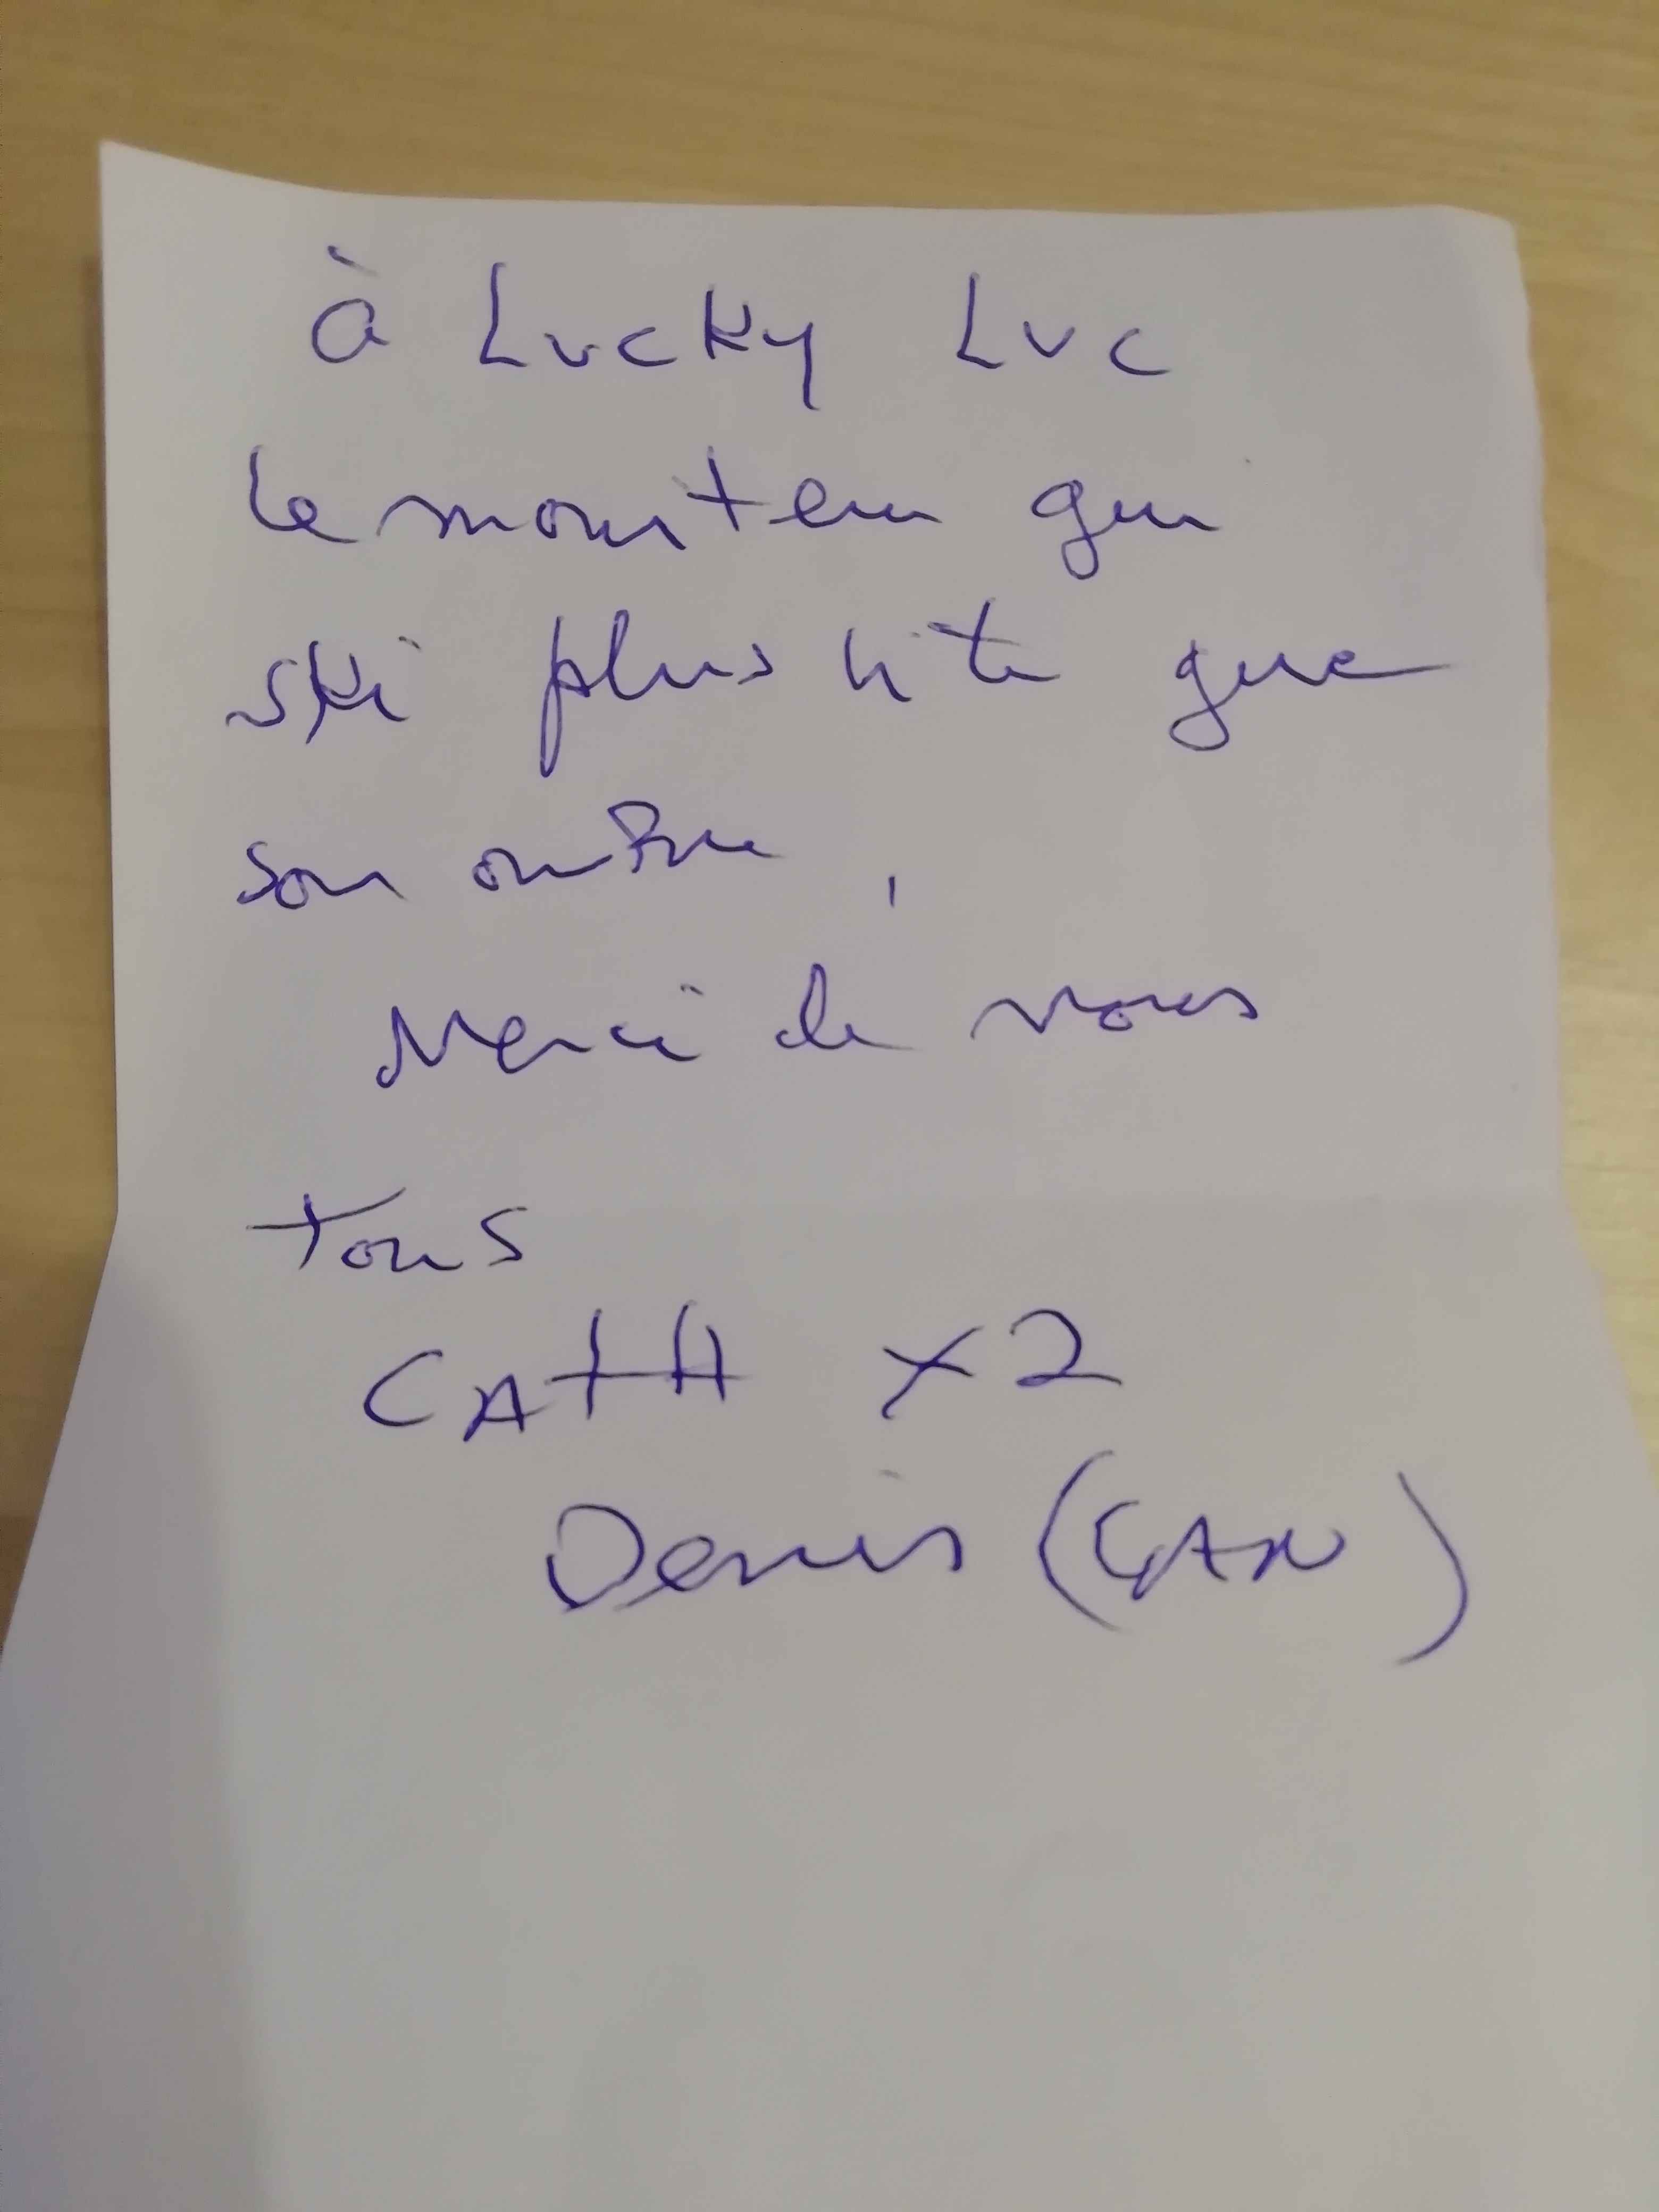 à Lucky Luc
le moniteur qui
ski plus vite que
son ombre,
Merci de nous
tous
CATH x2
Denis (CAN)